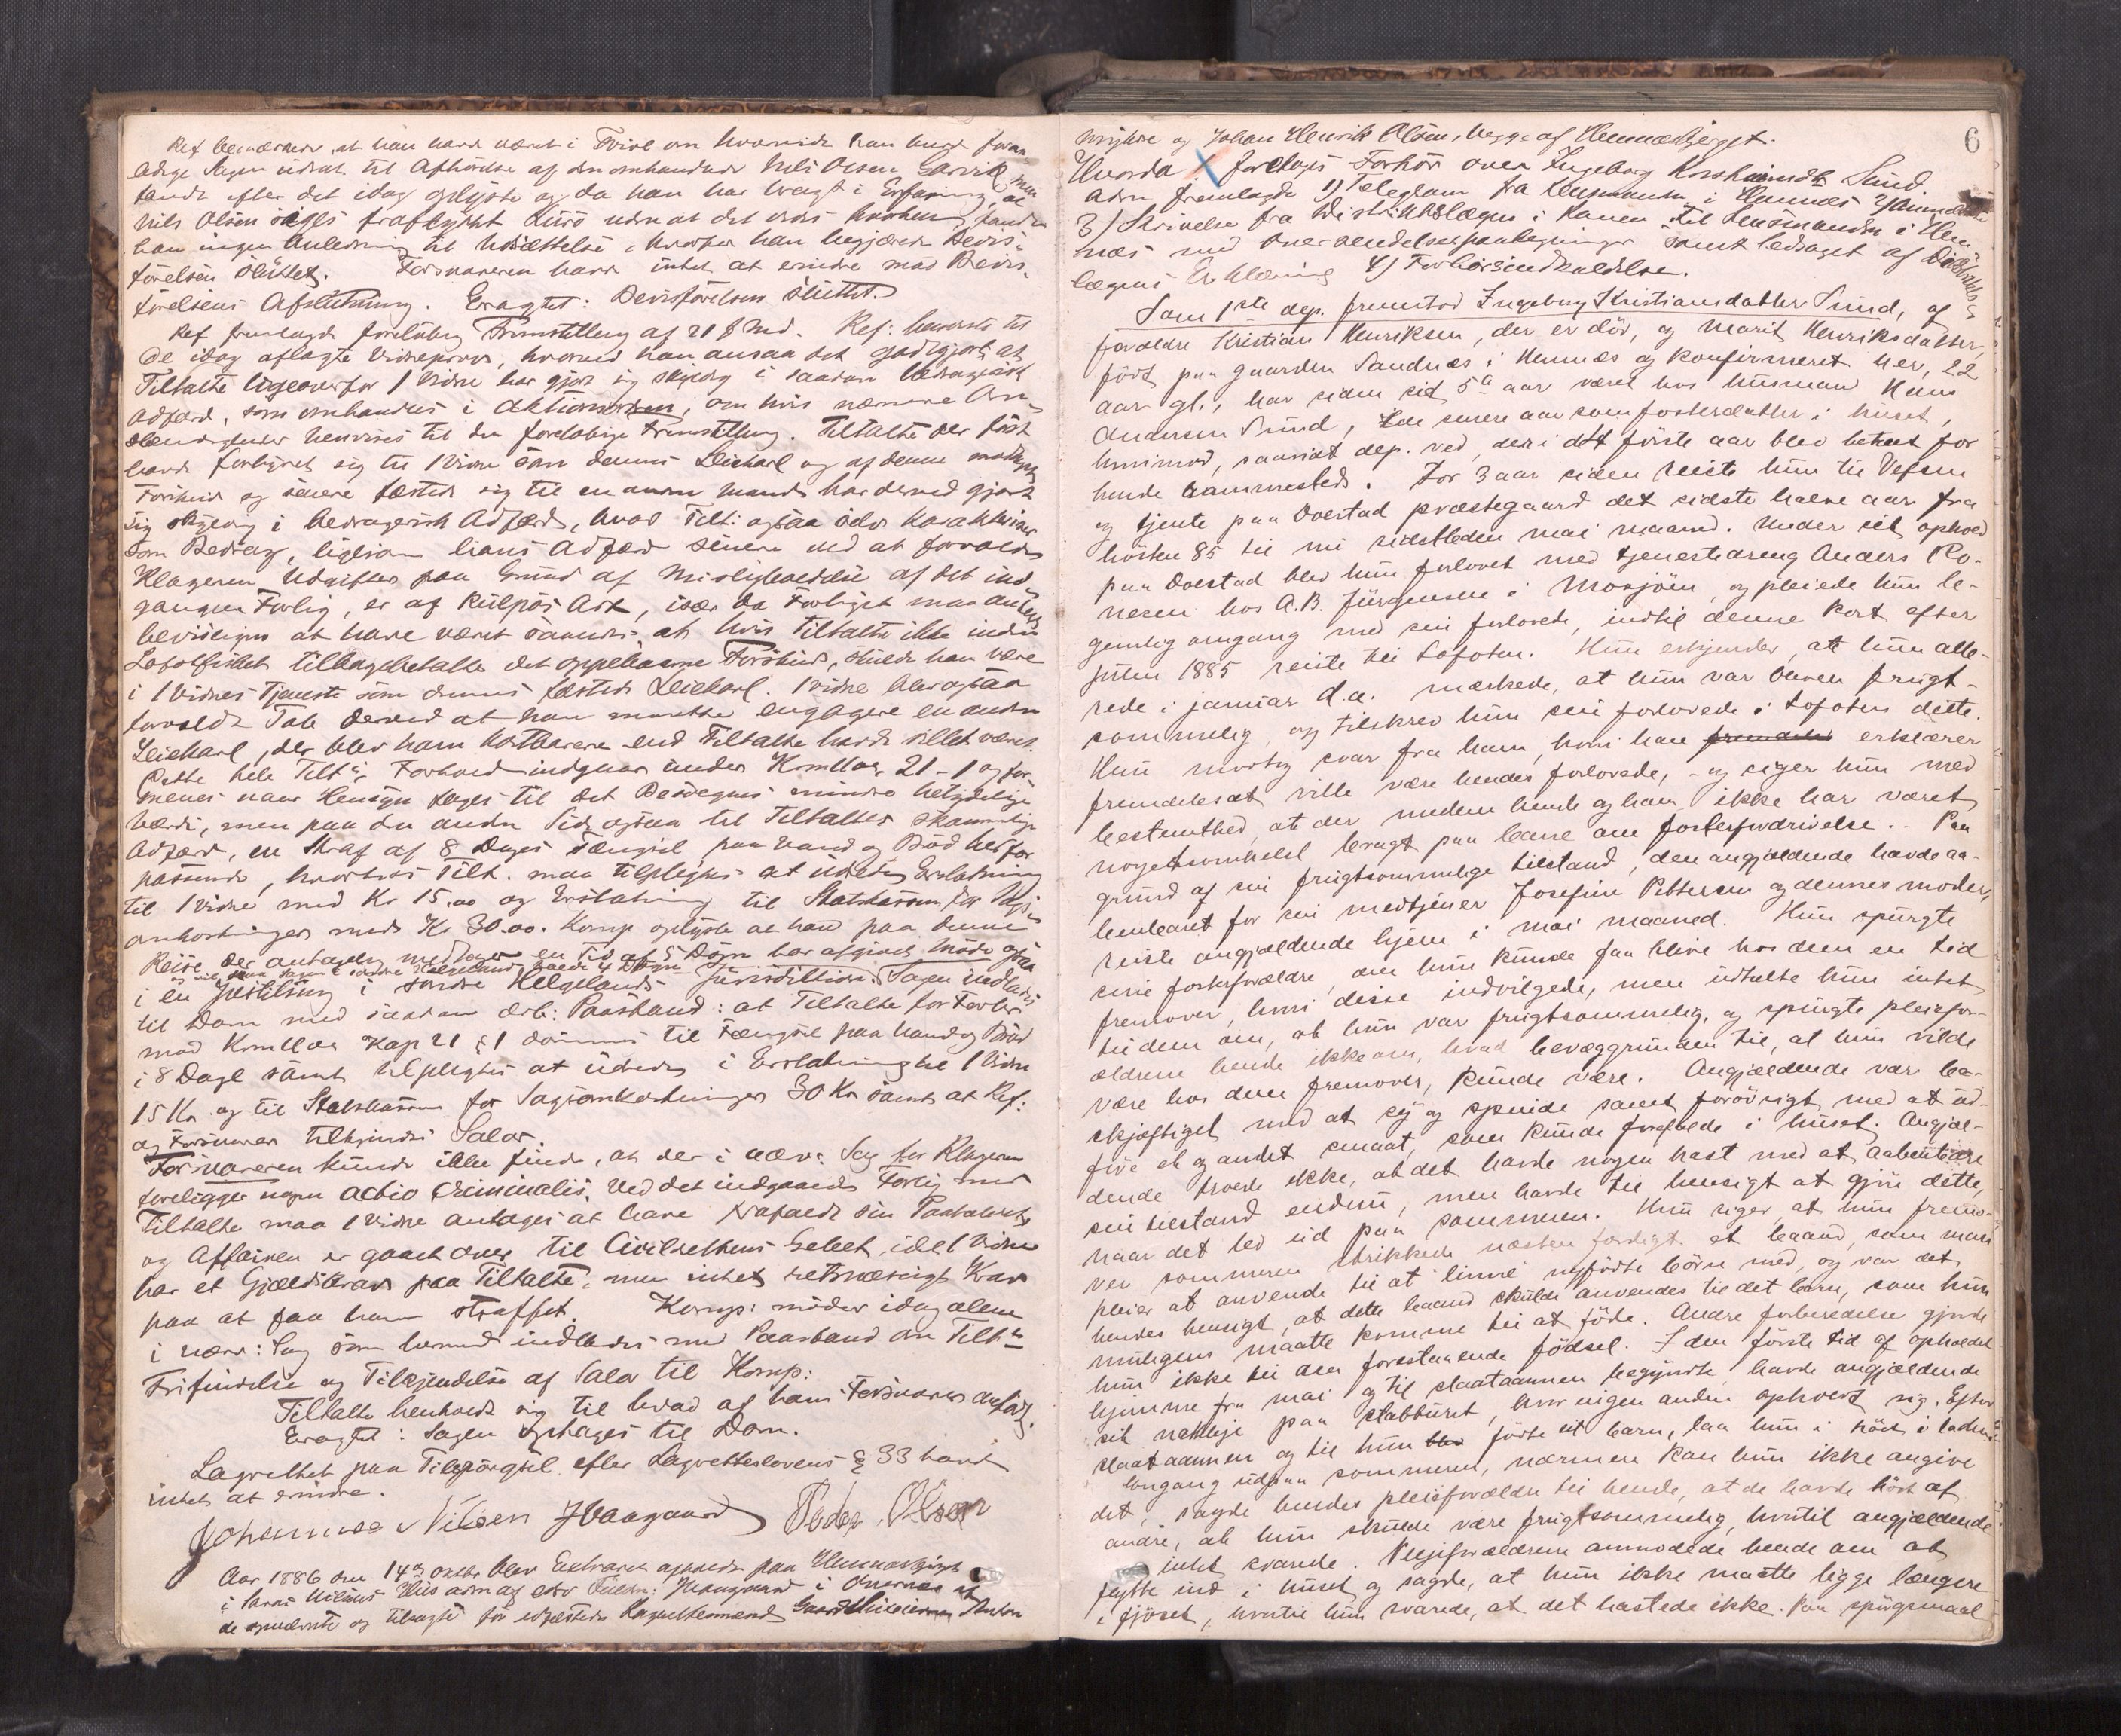 Ref bemærkede, at han havde været i Tvivl om hvorvidt han burde foran
ledige Sagen udsat til Afhørelse af den omhandlede Nils Olsen
fandt efter det idag oplyste og da han har bragt i Erfaring, at
Nils Olsen siges fraflyttet Lurö uden at det vides hvorhen, fandt
han ingen Anledning til Udsættelse, hvorfor han begjærede Bevis-
förelsen sluttet. Forsvareren havde intet at erindre mod Bevis-
förelsens Afslutning. Eragtet: Bevisförelsen sluttet.
Ref fremlagde foreløbig Fremstilling af 21 f Md. Ref: henviste til
de idag aflagte Vidneprover, hvorved han ansaa det godtgjort, at
Tiltalte ligeoverfor 1 Vidne har gjort sig skyldig i saadan bedragersk
Adfærd, som omhandles i Aktionsordren, om hvis nærmere Om-
stændigheder henvises til den foreløbige Fremstilling. Tiltalte der först
havde forhyret sig til 1 Vidne som dennes Leiekarl og af denne modtaget
Forskud og senere fæstede sig til en anden Mand har derved gjort
sig skyldig i bedragersk Adfærd, hvad Tilt: ogsaa selv karakteriserer
som Bedrag, ligesom hans Adfærd senere ved at forvolde
Klageren Udgifter paa Grund af Misligholdelse af det ind
gangne Forlig, er af kulpös Art, især da Forliget maa antages
beviisligen at have været saaledes, at hvis Tiltalte ikke inden
Lofotfisket tilbagebetalte det oppebaarne Forskud, skulde han være
i 1 Vidnes Tjeneste som dennes fæstede Leiekarl. 1 Vidne blev ogsaa
forvoldt Tab derved at han maatte engagere en anden
Leiekarl, der blev ham kostbarere end Tiltalte havde villet været.
Dette hele Tilt's Forhold indgaar under Krimllov. 21 - 1 og for
menes naar Hensyn tages til det Besvegnes mindre betydelige
Værdi, men paa den anden Side ogsaa til Tiltaltes skammelige
Adfærd, en Straf af 8 Dages Fængsel paa Vand og Bröd herfor
passende, hvorhos Tilt. maa tilpligtes at udrede Erstatning
til 1 Vidne med Kr 15.00 og Erstatning til Statskassen for Sags-
omkostninger med Kr 30.00. Komp oplyste at han paa denne
Reise der antagelig medtager en Tid af 5 Døgn har afgivet Möde ogsaa
i en Jüstitssag i söndre Helgelands Jurisdiktion. Sagen indlades
til Dom med saadan deb: Paastand: at Tiltalte for Forbr:
mod Krimllov Kap 21 § 1 dömmes til Fængsel paa Vand og Bröd
i 8 Dage samt tilpligtes at udrede i Erstatning til 1 Vidne
15 Kr og til Statskassen for Sagsomkostninger 30 Kr samt at Ref:
og Forsvarer tilkjendes Salær.
Forsvareren kunde ikke finde, at der i nærv: Sag for Klageren
foreligger nogen actio criminalis. Ved det indgaaede Forlig med
Tiltalte maa 1 Vidne antages at have frafaldt sin Paataleret
og Affairen er gaaet over til Civilrettens Gebeet, idet 1 Vidne
har et Gjældskrav paa Tiltalte, men intet retsmæssigt Krav
paa at faa ham straffet. Komp: möder idag alene
i nærv: Sag som hermed indlades med Paastand om Tilt's
Frifindelse og Tilkjendelse af Salær til Komp:
Tiltalte henholdt sig til hvad af hans Forsvarer anført.
Eragtet: Sagen optages til Dom.
Lagrettet paa Tilspörgsel efter Lagretteslovens § 33 havde
intet at erindre.
Johannes Nilsen JHaagaard Peder Olsen
Aar 1886 den 14de Oktbr blev Extraret afholdt paa Hemnesbjerget
i Hus adm af edsv Fuldm: Haagaard i Overvær af
de opnævnte og tilsagte før edfæstede Lagrettesmænd Anton
6
mykre og Johan Henrik Olsen, begge af Hemnæsbjerget.
Hvorda X foretoges Forhör over Ingeborg Kristiansdtr Sund.
Adm fremlagde 1) Telegram fra Lensmanden i Hemnæs 2) Anmeldelse
3) Skrivelse fra Distriktslægen i Ranen til Lensmanden i Hem-
næs med Oversendelsespaategninger samt ledsaget af Distrikts-
lægens Erklæring 4) Forhörsindkaldelse.
Som 1ste dep. fremstod Ingeborg Kristiansdatter Sund, af
forældre Kristian Henriksen, der er död, og Marit Henriksdatter,
födt paa gaarden Sandnæs i Hemnæs og konfirmeret her, 22
aar gl., har siden sit 5te aar været hos husmand Hans
Andersen Sund, de senere aar som fosterdatter i huset,
hvorimod, saavidt dep. ved, der i det förste aar blev betalt for
hende sammesteds. For 3 aar siden reiste hun til Vefsen
og tjente paa Dolstad præstegaard det sidste halve aar fra
hösten 85 til nu sidstleden mai maaned. Under sit ophold
paa Dolstad blev hun forlovet med tjenestedreng Anders Ro-
nesen hos A.B. Jürgensen i Mosjöen, og pleiede hun le-
gemlig omgang med sin forlovede, indtil denne kort efter
julen 1885 reiste til Lofoten. Hun erkjender, at hun alle-
rede i januar d.a. mærkede, at hun var bleven frugt-
sommelig, og tilskrev hun sin forlovede i Lofoten dette.
Hun modtog svar fra ham, hvori han erklærer
fremdeles at ville være hendes forlovede, - og siger hun med
bestemthed, at der mellem hende og ham ikke har været
nogetsomhelst bragt paa bane om fosterfordrivelse. - Paa
grund af sin frugtsommelige tilstand, den angjældende havde aa-
benbaret for sin medtjener Josefine Pettersen og dennes moder,
reiste angjældende hjem i mai maaned. Hun spurgte
sine fosterforældre, om hun kunde faa blive hos dem en tid
fremover, hvori disse indvilgede, men udtalte hun intet
til dem om, at hun var frugtsommelig, og spurgte pleiefor-
ældrene hende ikke om, hvad bevæggrunden til, at hun vilde
være hos dem fremover, kunde være. Angjældende var be-
skjæftiget med at sy og spinde samt forövrigt med at ud-
före et og andet smaat, som kunde forefalde i huset. Angjæl-
dende troede ikke, at det havde nogen hast med at aabenbare
sin tilstand endnu, men havde til hensigt at gjöre dette,
naar det led ud paa sommeren. Hun siger, at hun fremo-
ver sommeren strikkede næsten færdigt et baand, som man
pleier at anvende til at "linne" nyfödte börn med, og var det
hendes hensigt, at dette baand skulde anvendes til det barn, som hun
muligens maatte komme til at föde. Andre forberedelser gjorde
hun ikke til den forestaaende födsel. I den förste tid af opholdet
hjemme fra mai og til slaataannen begyndte, havde angjældende
sit natteleje paa stabburet, hvor ingen anden opholdt sig. Efter
slaataannen og til hun födte sit barn, laa hun i höet i laden.
Engang udpaa sommeren, nærmere kan hun ikke angive
det, sagde hendes pleieforældre til hende, at de havde hört af
andre, at hun skulde være frugtsommelig, hvortil angjældende
intet svarede. Pleieforældrene anmodede hende om at
flytte ind i huset og sagde, at hun ikke maatte ligge længere
i fjöset, hvortil hun svarede, at det hastede ikke. Paa spörgsmaal